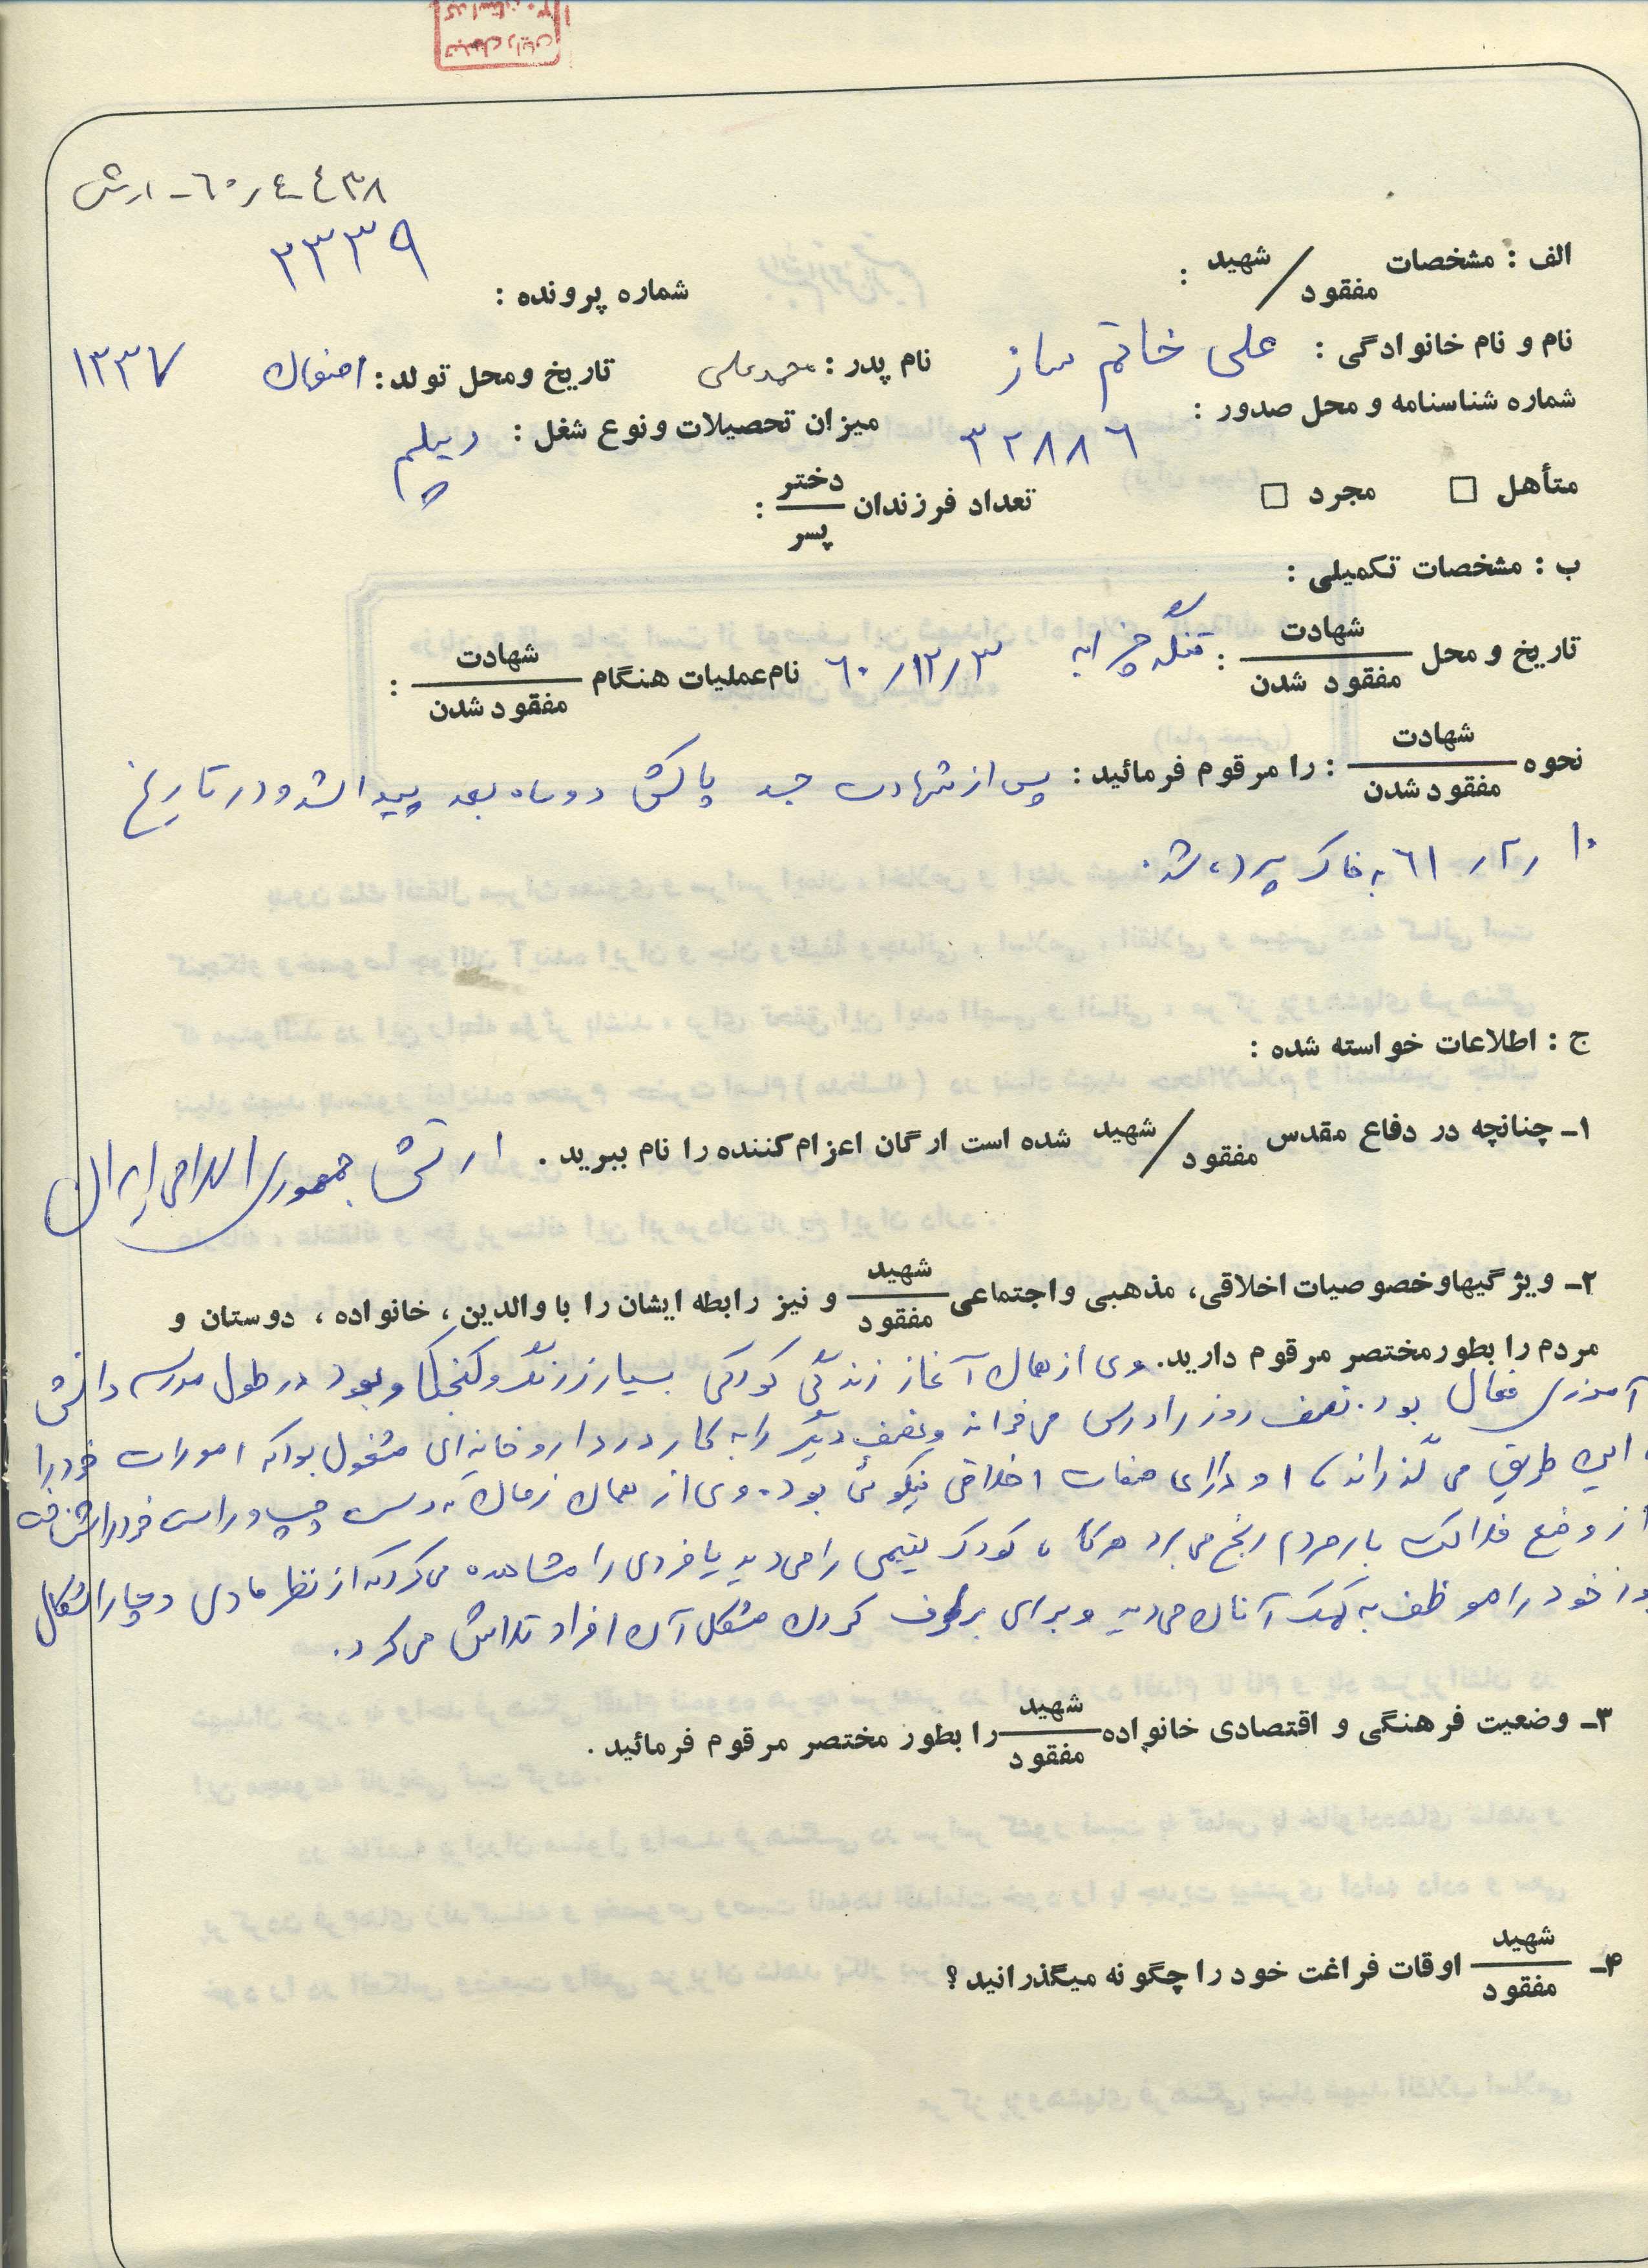 ۶۰٫۴۴۳۸ - ارتش
الف : مشخصات شهید / مفقود :
شماره پرونده : ۲۳۳۹
نام و نام خانوادگی : علی خاتم ساز نام پدر : محمدعلی تاریخ و محل تولد : اصفهان ۱۳۳۷
شماره شناسنامه و محل صدور : ۳۲۸۸۶ میزان تحصیلات و نوع شغل : دیپلم
متأهل □ مجرد □ تعداد فرزندان دختر / پسر :
ب : مشخصات تکمیلی :
تاریخ و محل شهادت / مفقود شدن : تنگه چزابه ۶۰/۱۲/۳ نام عملیات هنگام شهادت / مفقود شدن :
نحوه شهادت / مفقود شدن : را مرقوم فرمائید : پس از شهادت جسد پاکش دو ماه بعد پیدا شد و در تاریخ
۱۰ ر۲ر ۶۱ به خاک سپرده شد.
ج : اطلاعات خواسته شده :
۱- چنانچه در دفاع مقدس شهید / مفقود شده است ارگان اعزام کننده را نام ببرید . ارتش جمهوری اسلامی ایران
۲- ویژگیها و خصوصیات اخلاقی، مذهبی و اجتماعی شهید / مفقود و نیز رابطه ایشان را با والدین ، خانواده ، دوستان و
مردم را بطور مختصر مرقوم دارید. وی از همان آغاز زندگی کودکی بسیار زرنگ و کنجکاو بود در طول مدرسه دانش
آموزی فعال بود. نصف روز را درس می خواند و نصف دیگر را به کار در داروخانه ای مشغول بود که امورات خود را
این طریق می گذراند، او دارای صفات اخلاقی نیکوئی بود. وی از همان زمان که دست چپ و راست خود را شناخت
از وضع فلاکت بار مردم رنج می برد هرگاه کودک یتیمی را می دید یا فردی را مشاهده می کرد که از نظر مادی دچار اشکال
بود خود را موظف به کمک آنان می دید و برای برطرف کردن مشکل آن افراد تلاش می کرد.
۳- وضعیت فرهنگی و اقتصادی خانواده شهید / مفقود را بطور مختصر مرقوم فرمائید .
۴- شهید / مفقود اوقات فراغت خود را چگونه میگذرانید ؟